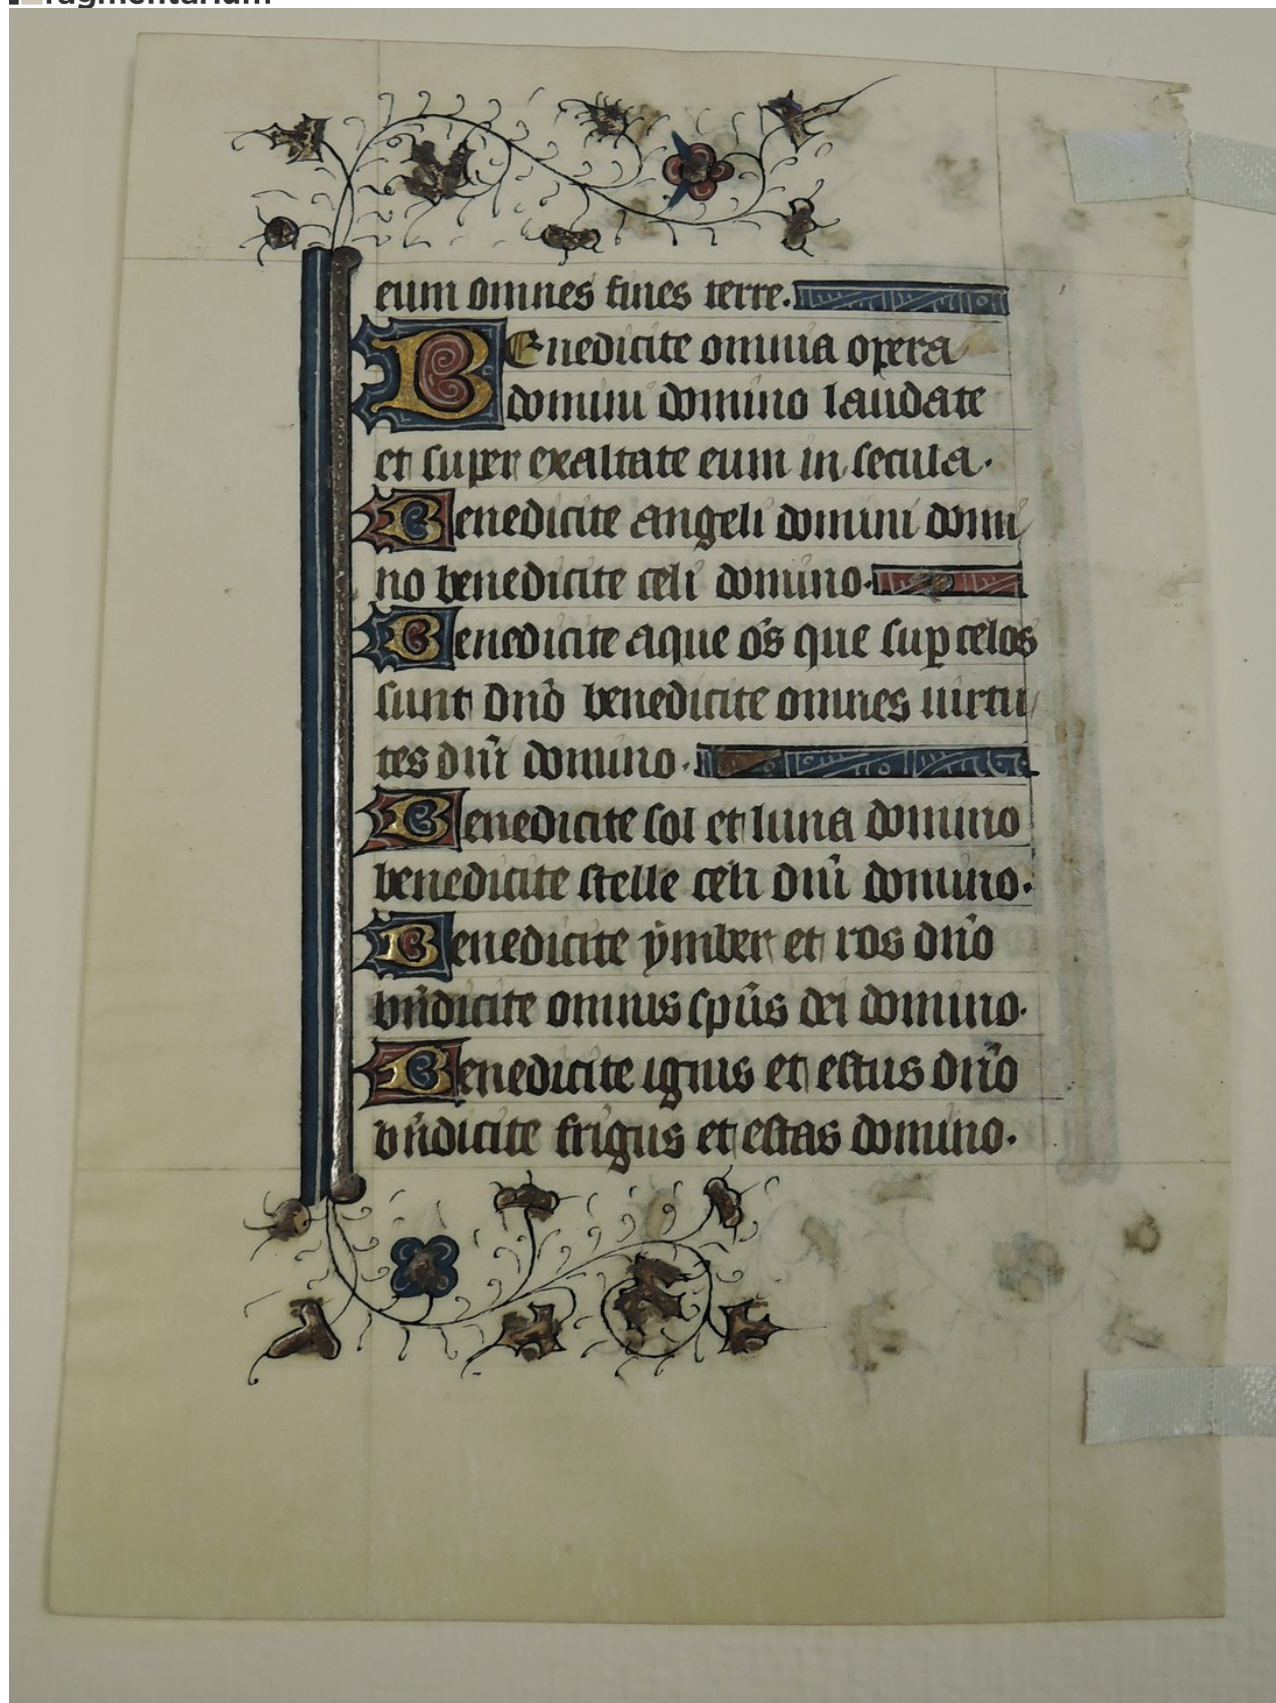 fragmentarium
eum omnes fines terre.
BEnedicite omnia opera
domini domino laudate
et super exaltate eum in secula.
Benedicite angeli domini domi
no benedicite celi domino.
Benedicite aque oḿs que sup celos
sunt dño benedicite omnes uirtu
tes dñi domino.
Benedicite sol et luna domino
benedicite stelle celi dñi domino.
Benedicite ymber et ros dño
bñdicite omnis spũs dei domino.
Benedicite ignis et estus dño
bñdicite frigus et estas domino.